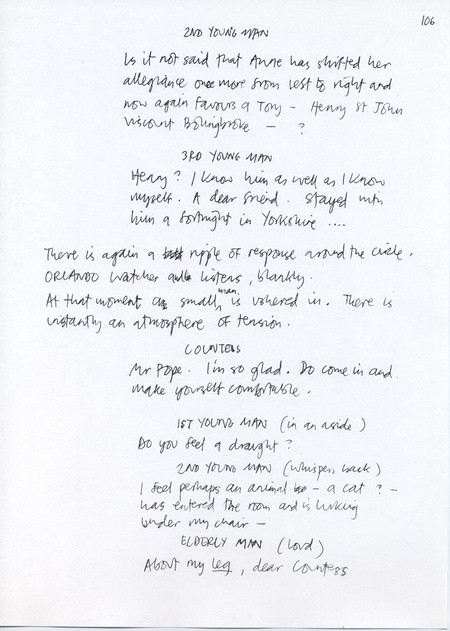 106
2ND YOUNG MAN
Is it not said that Anne has shifted her
allegiance once more from left to right and
now again favours a Tory – Henry St John
Viscount Bolingbroke – ?
3RD YOUNG MAN
Henry? I know him as well as I know
myself. A dear friend. Stayed with
him a fortnight in Yorkshire ....
There is again a ripple of response around the circle.
ORLANDO watches and listens, blankly.
At that moment a small man is ushered in. There is
instantly an atmosphere of tension.
COUNTESS
Mr Pope. I'm so glad. Do come in and
make yourself comfortable.
1ST YOUNG MAN (in an aside)
Do you feel a draught?
2ND YOUNG MAN (whispers back)
I feel perhaps an animal – a cat? –
has entered the room and is lurking
under my chair –
ELDERLY MAN (loud)
About my leg, dear Countess